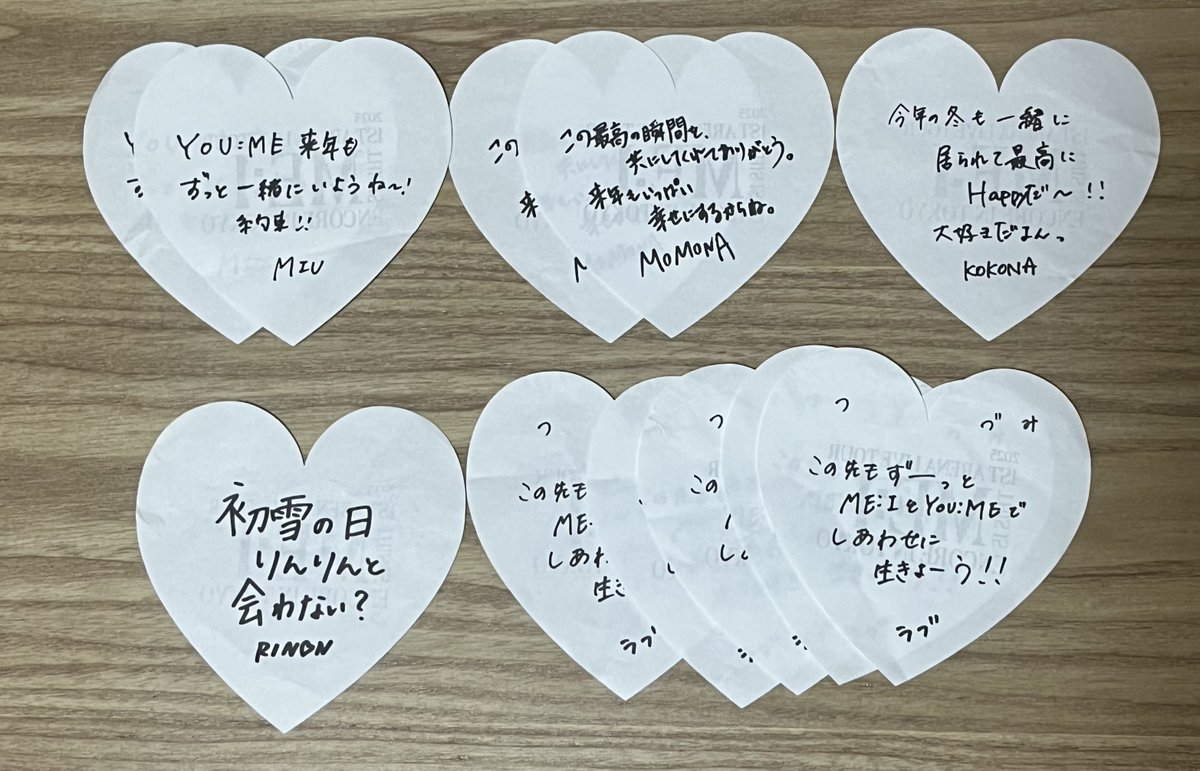 YOU:ME 来年も
ずっと一緒にいようね〜!
約束!!
MIU
この
来
この最高の瞬間を、
来年もいっぱい
幸せにするからね。
MOMONA
今年の冬も一緒に
居られて最高に
Happyだ〜!!
大好きだよん。
KOKONA
初雪の日
りんりんと
会わない?
RINON
つ
この先も
ME:
しあわ
生き
ラブ
つ
この
し
つ づみ
この先もずーっと
ME:IとYOU:MEで
しあわせに
生きよーう!!
ラブ